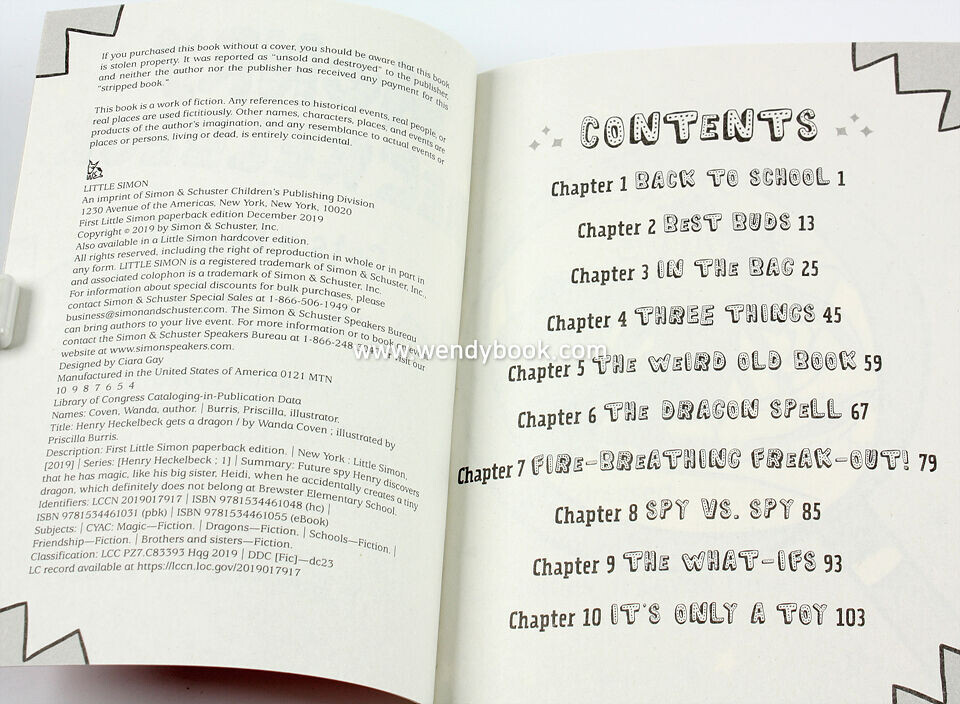 If you purchased this book without a cover, you should be aware that this book
is stolen property. It was reported as "unsold and destroyed" to the publisher,
and neither the author nor the publisher has received any payment for this
"stripped book."
This book is a work of fiction. Any references to historical events, real people, or
real places are used fictitiously. Other names, characters, places, and events are
products of the author's imagination, and any resemblance to actual events or
places or persons, living or dead, is entirely coincidental.
LITTLE SIMON
An imprint of Simon & Schuster Children's Publishing Division
1230 Avenue of the Americas, New York, New York, 10020
First Little Simon paperback edition December 2019
Copyright © 2019 by Simon & Schuster, Inc.
Also available in a Little Simon hardcover edition.
All rights reserved, including the right of reproduction in whole or in part in
any form. LITTLE SIMON is a registered trademark of Simon & Schuster, Inc.,
and associated colophon is a trademark of Simon & Schuster, Inc.
For information about special discounts for bulk purchases, please
contact Simon & Schuster Special Sales at 1-866-506-1949 or
business@simonandschuster.com. The Simon & Schuster Speakers Bureau
can bring authors to your live event. For more information or to book an event
contact the Simon & Schuster Speakers Bureau at 1-866-248 visit our
website at www.simonspeakers.com.
Designed by Ciara Gay
Manufactured in the United States of America 0121 MTN
10 9 8 7 6 5 4
Library of Congress Cataloging-in-Publication Data
Names: Coven, Wanda, author. | Burris, Priscilla, illustrator.
Title: Henry Heckelbeck gets a dragon / by Wanda Coven ; illustrated by
Priscilla Burris.
Description: First Little Simon paperback edition. | New York : Little Simon,
[2019] | Series: [Henry Heckelbeck ; 1] | Summary: Future spy Henry discovers
that he has magic, like his big sister, Heidi, when he accidentally creates a tiny
dragon, which definitely does not belong at Brewster Elementary School.
Identifiers: LCCN 2019017917 | ISBN 9781534461048 (hc) |
ISBN 9781534461031 (pbk) | ISBN 9781534461055 (eBook)
Subjects: | CYAC: Magic—Fiction. | Dragons—Fiction. | Schools—Fiction. |
Friendship—Fiction. | Brothers and sisters—Fiction.
Classification: LCC PZ7.C83393 Hqg 2019 | DDC [Fic]—dc23
LC record available at https://lccn.loc.gov/2019017917
CONTENTS
Chapter 1 BACK TO SCHOOL 1
Chapter 2 BEST BUDS 13
Chapter 3 IN THE BAG 25
Chapter 4 THREE THINGS 45
Chapter 5 THE WEIRD OLD BOOK 59
Chapter 6 THE DRAGON SPELL 67
Chapter 7 FIRE-BREATHING FREAK-OUT! 79
Chapter 8 SPY VS. SPY 85
Chapter 9 THE WHAT-IFS 93
Chapter 10 IT'S ONLY A TOY 103
www.wendybook.com